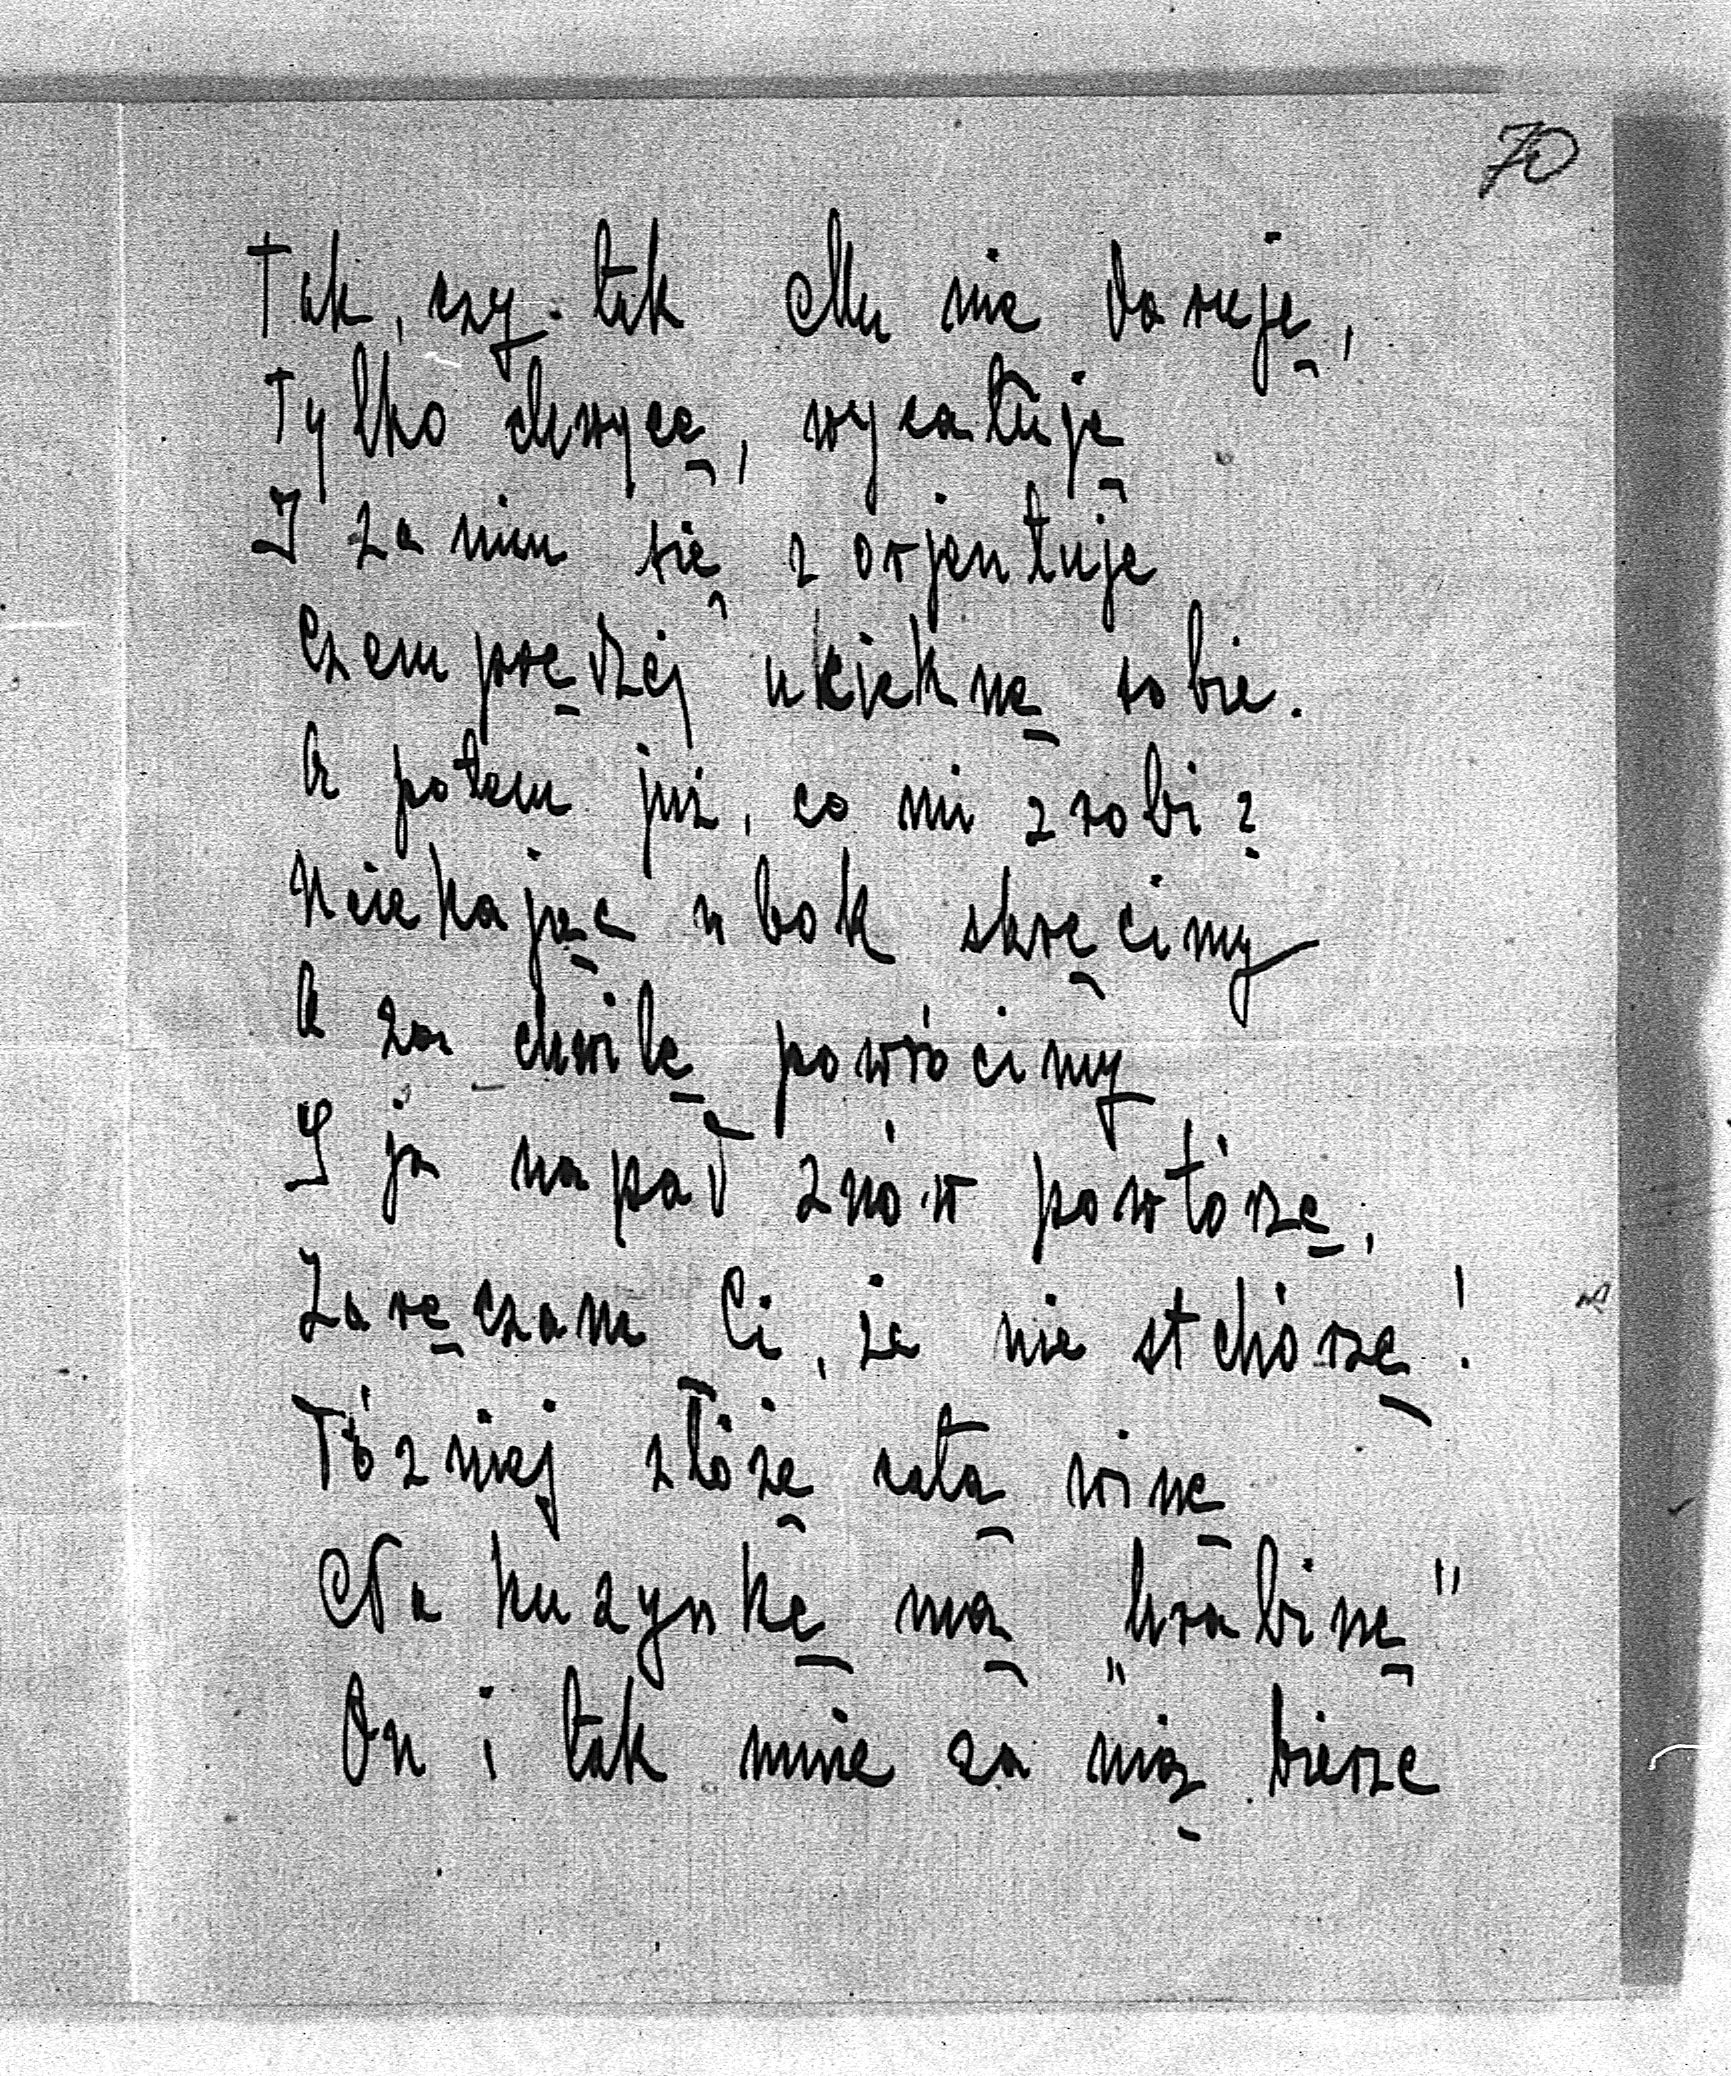 70
Tak, czy tak Mu nie daruję,
Tylko chwycę, wycałuję
I zanim się zorjentuje
Czemprędzej ucieknę sobie.
A potem już, co mi zrobi?
Uciekając w bok skręcimy
A za chwilę powrócimy
I ja napad znów powtórzę,
Zaręczam Ci, że nie stchórzę!
Później złożę całą winę
Na kuzynkę mą „hrabinę"
On i tak mnie za nią bierze